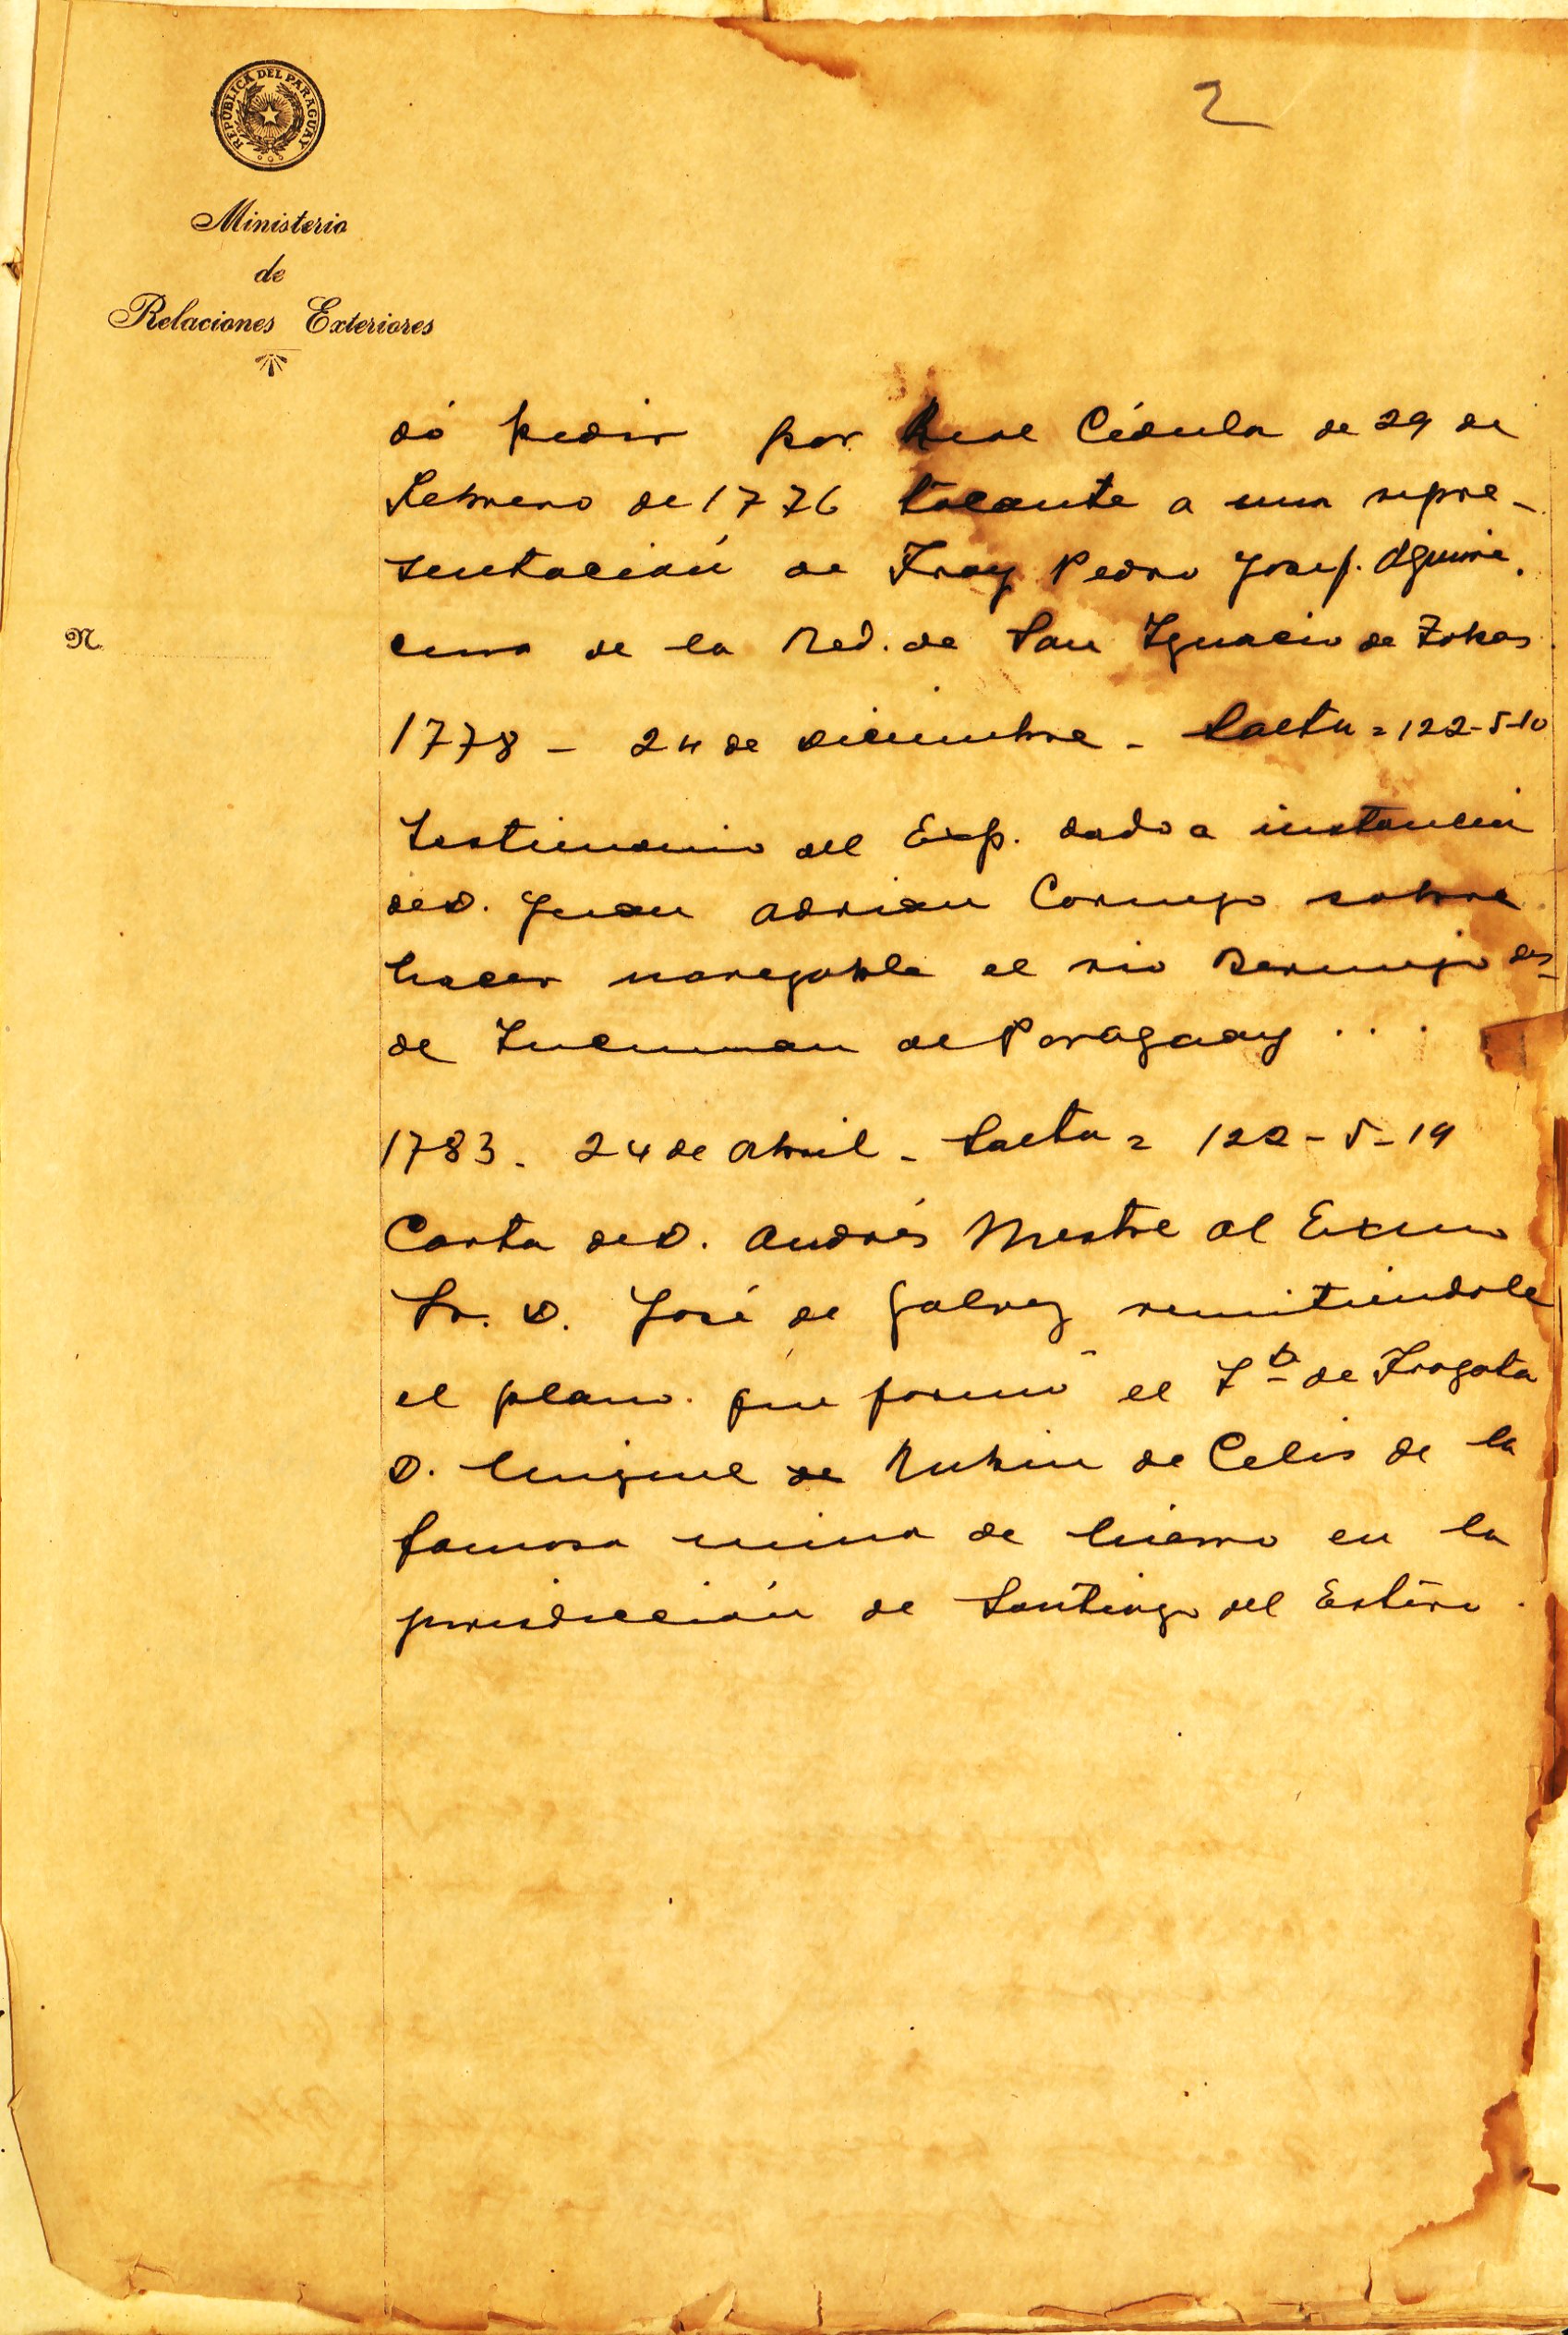 2
REPÚBLICA DEL PARAGUAY
Ministerio
de
Relaciones Exteriores
dó pedir por Real Cédula de 29 de
Febrero de 1776 tocante a una repre-
sentación de Fray Pedro Josef. Aguirre,
N.
cura de la Red. de San Ignacio de Tobas
1778 - 24 de diciembre - Saeta = 122-5-10
Testimonio del Exp. dado a instancia
de D. Juan Adrian Cornejo sobre
hacer navegable el rio Bermejo des-
de Tucuman al Paraguay ...
1783 - 24 de Abril - Saeta = 122-5-19
Carta de D. Andrés Mestre al Exmo
Sr. D. José de Galvez remitiendole
el plano que formó el Tte de Fragata
D. Miguel de Rubin de Celis de la
famosa mina de hierro en la
jurisdicción de Santiago del Estero.